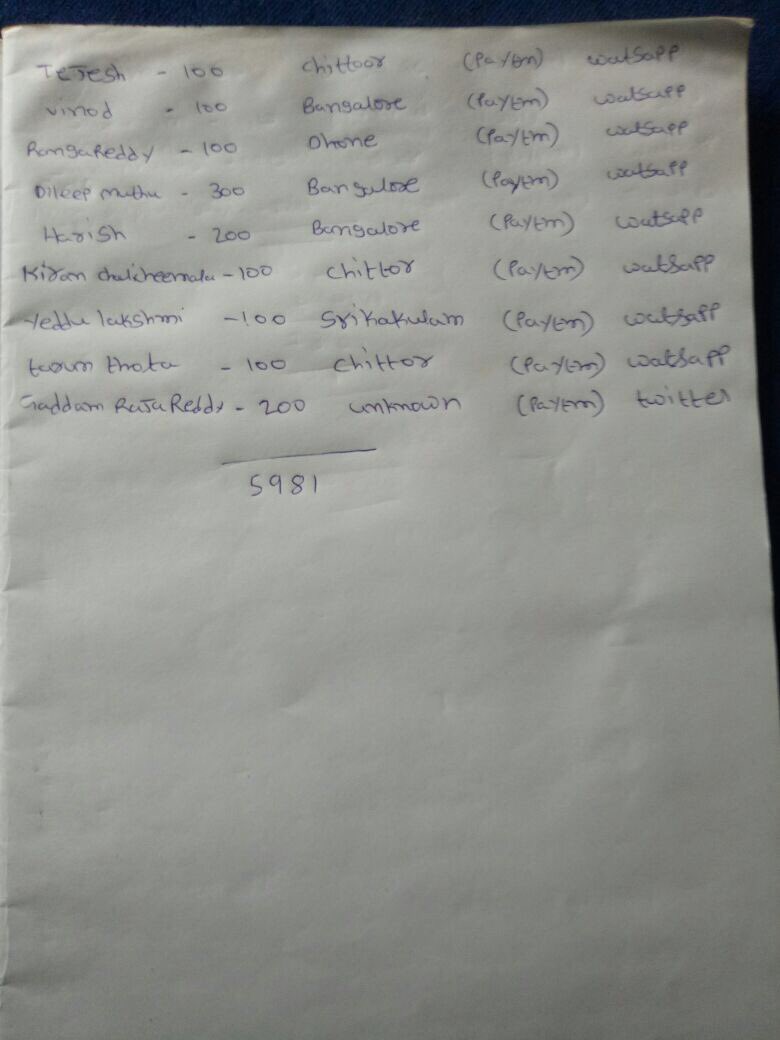 TeJesh - 100 chittoor (Paytm) watsapp
vinod - 100 Bangalore (Paytm) watsapp
RangaReddy - 100 Dhone (Paytm) watsapp
Dileep muthu - 300 Bangalore (Paytm) watsapp
Harish - 200 Bangalore (Paytm) watsapp
Kiran chakcheemala - 100 chittor (Paytm) watsapp
Yeddu lakshmi - 100 Srikakulam (Paytm) watsapp
tarun thota - 100 chittor (Paytm) watsapp
Gaddam RaJa Reddy - 200 unknown (Paytm) twitter
5981